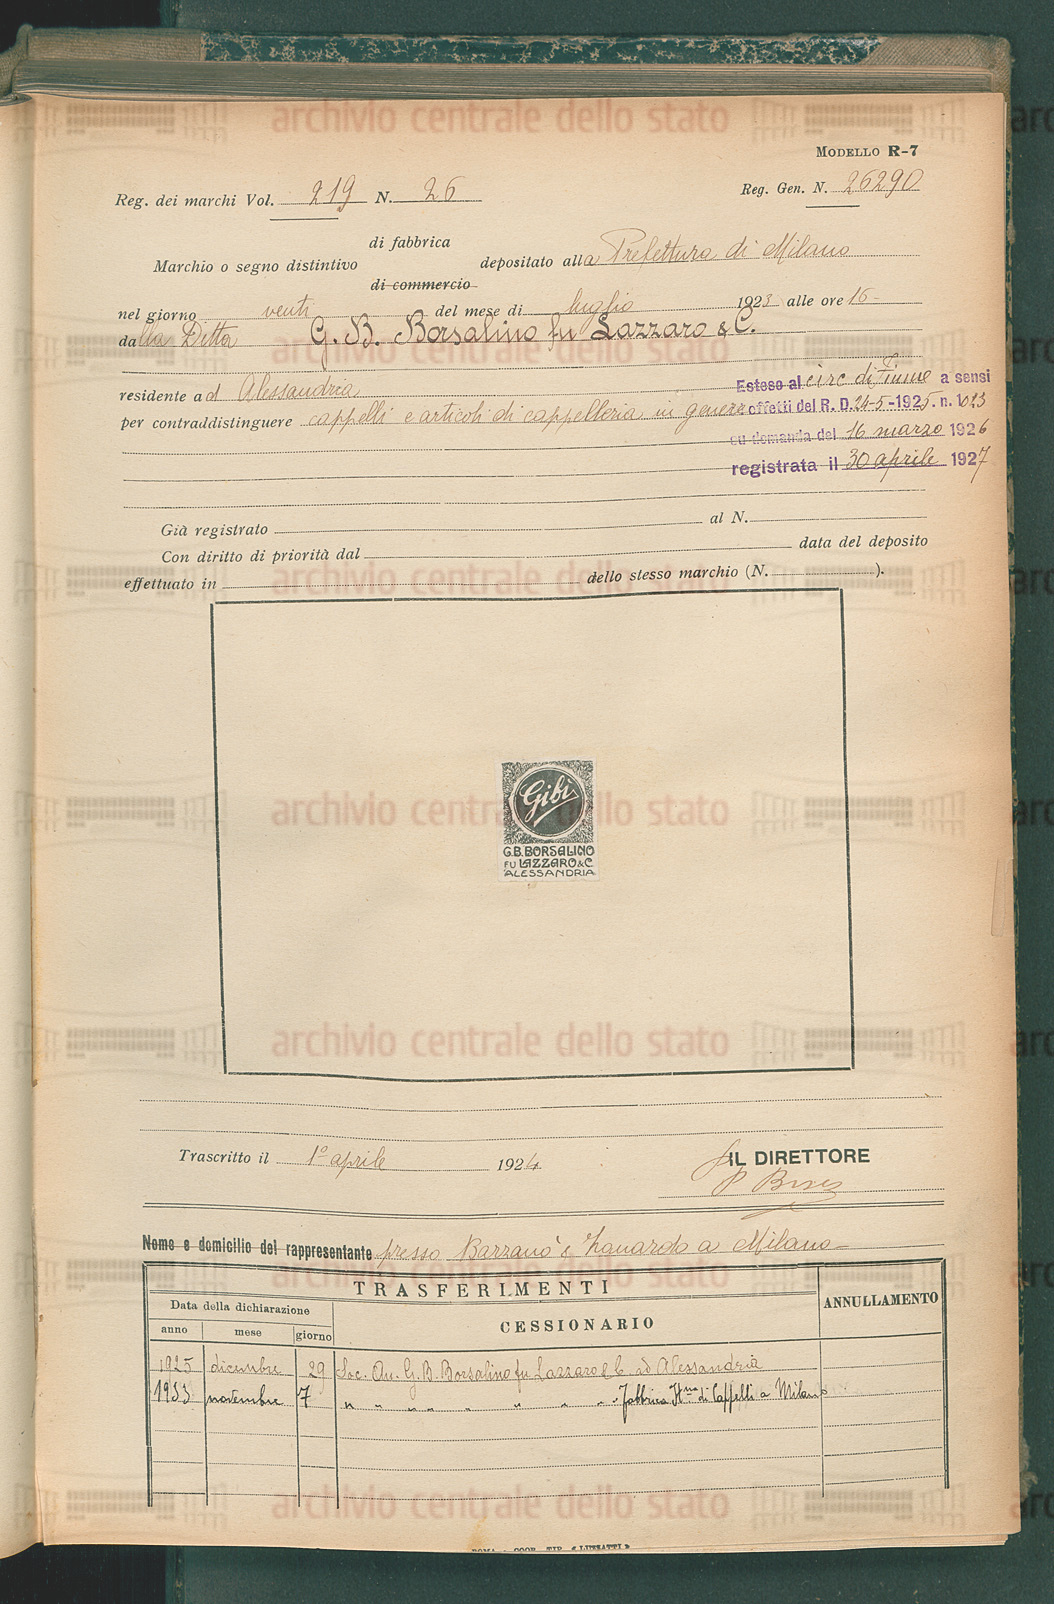 MODELLO R-7
Reg. dei marchi Vol. 219 N. 26
Reg. Gen. N. 26290
di fabbrica
Marchio o segno distintivo
di commercio
depositato alla Prefettura di Milano
nel giorno venti del mese di luglio 1923 alle ore 16-
dalla Ditta G. B. Borsalino fu Lazzaro & C.
residente ad Alessandria
Esteso al circ di Fiume a sensi
per contraddistinguere cappelli e articoli di cappelleria in genere
effetti del R. D. 21-5-1925. n. 1013
su domanda del 16 marzo 1926
registrata il 30 aprile 1927
Già registrato al N.
Con diritto di priorità dal data del deposito
effettuato in dello stesso marchio (N. ).
Gibi
G.B. BORSALINO
FU LAZZARO & C.
ALESSANDRIA
Trascritto il 1º aprile 1924
IL DIRETTORE
Nome e domicilio del rappresentante presso Barzanò & Zanardo a Milano
TRASFERIMENTI
ANNULLAMENTO
Data della dichiarazione
CESSIONARIO
anno mese giorno
1925 dicembre 29 Soc. An. G. B. Borsalino fu Lazzaro & C. ad Alessandria
1933 novembre 7 " " " " " " " " Fabbrica Itna di Cappelli a Milano
ROMA - COOP. TIP. « LUZZATTI »
archivio centrale dello stato
archivio centrale dello stato
archivio centrale dello stato
archivio centrale dello stato
archivio centrale dello stato
archivio centrale dello stato
archivio centrale dello stato